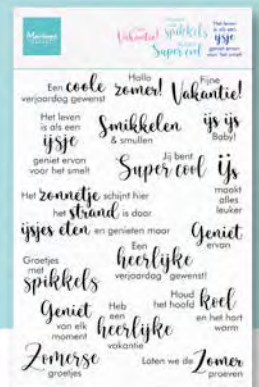 Marianne
Vakantie!
spikkels
Super cool
Het leven
is als een
ijsje
geniet ervan
voor het smelt
Een coole
verjaardag gewenst
Hallo
zomer!
Fijne
Vakantie!
Het leven
is als een
ijsje
geniet ervan
voor het smelt
Smikkelen
& smullen
ijs ijs
Baby!
Jij bent
Super cool
ijs
maakt
alles
leuker
Het zonnetje schijnt hier
het strand is daar
ijsjes eten en genieten maar
Geniet
ervan
Een
heerlijke
verjaardag gewenst!
Groetjes
met
spikkels
Geniet
van elk
moment
Heb
een
heerlijke
vakantie
Houd
het hoofd koel
en het hart
warm
Zomerse
groetjes
Laten we de Zomer
proeven